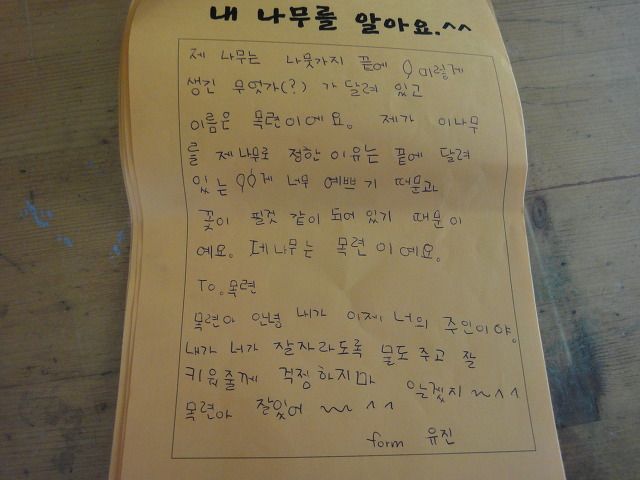 내 나무를 알아요.^^
제 나무는 나뭇가지 끝에 이렇게
생긴 무엇가(?) 가 달려 있고
이름은 목련이에요. 제가 이나무
를 제나무로 정한 이유는 끝에 달려
있는 게 너무 예쁘기 때문과
꽃이 필것 같이 되어 있기 때문이
예요. 제나무는 목련 이예요.
To. 목련
목련아 안녕 내가 이제 너의 주인이야.
내가 너가 잘자라도록 물도 주고 잘
키워줄께 걱정하지마 알겠지 ~^^
목련아 잘있어 ~~ ^^
form 유진